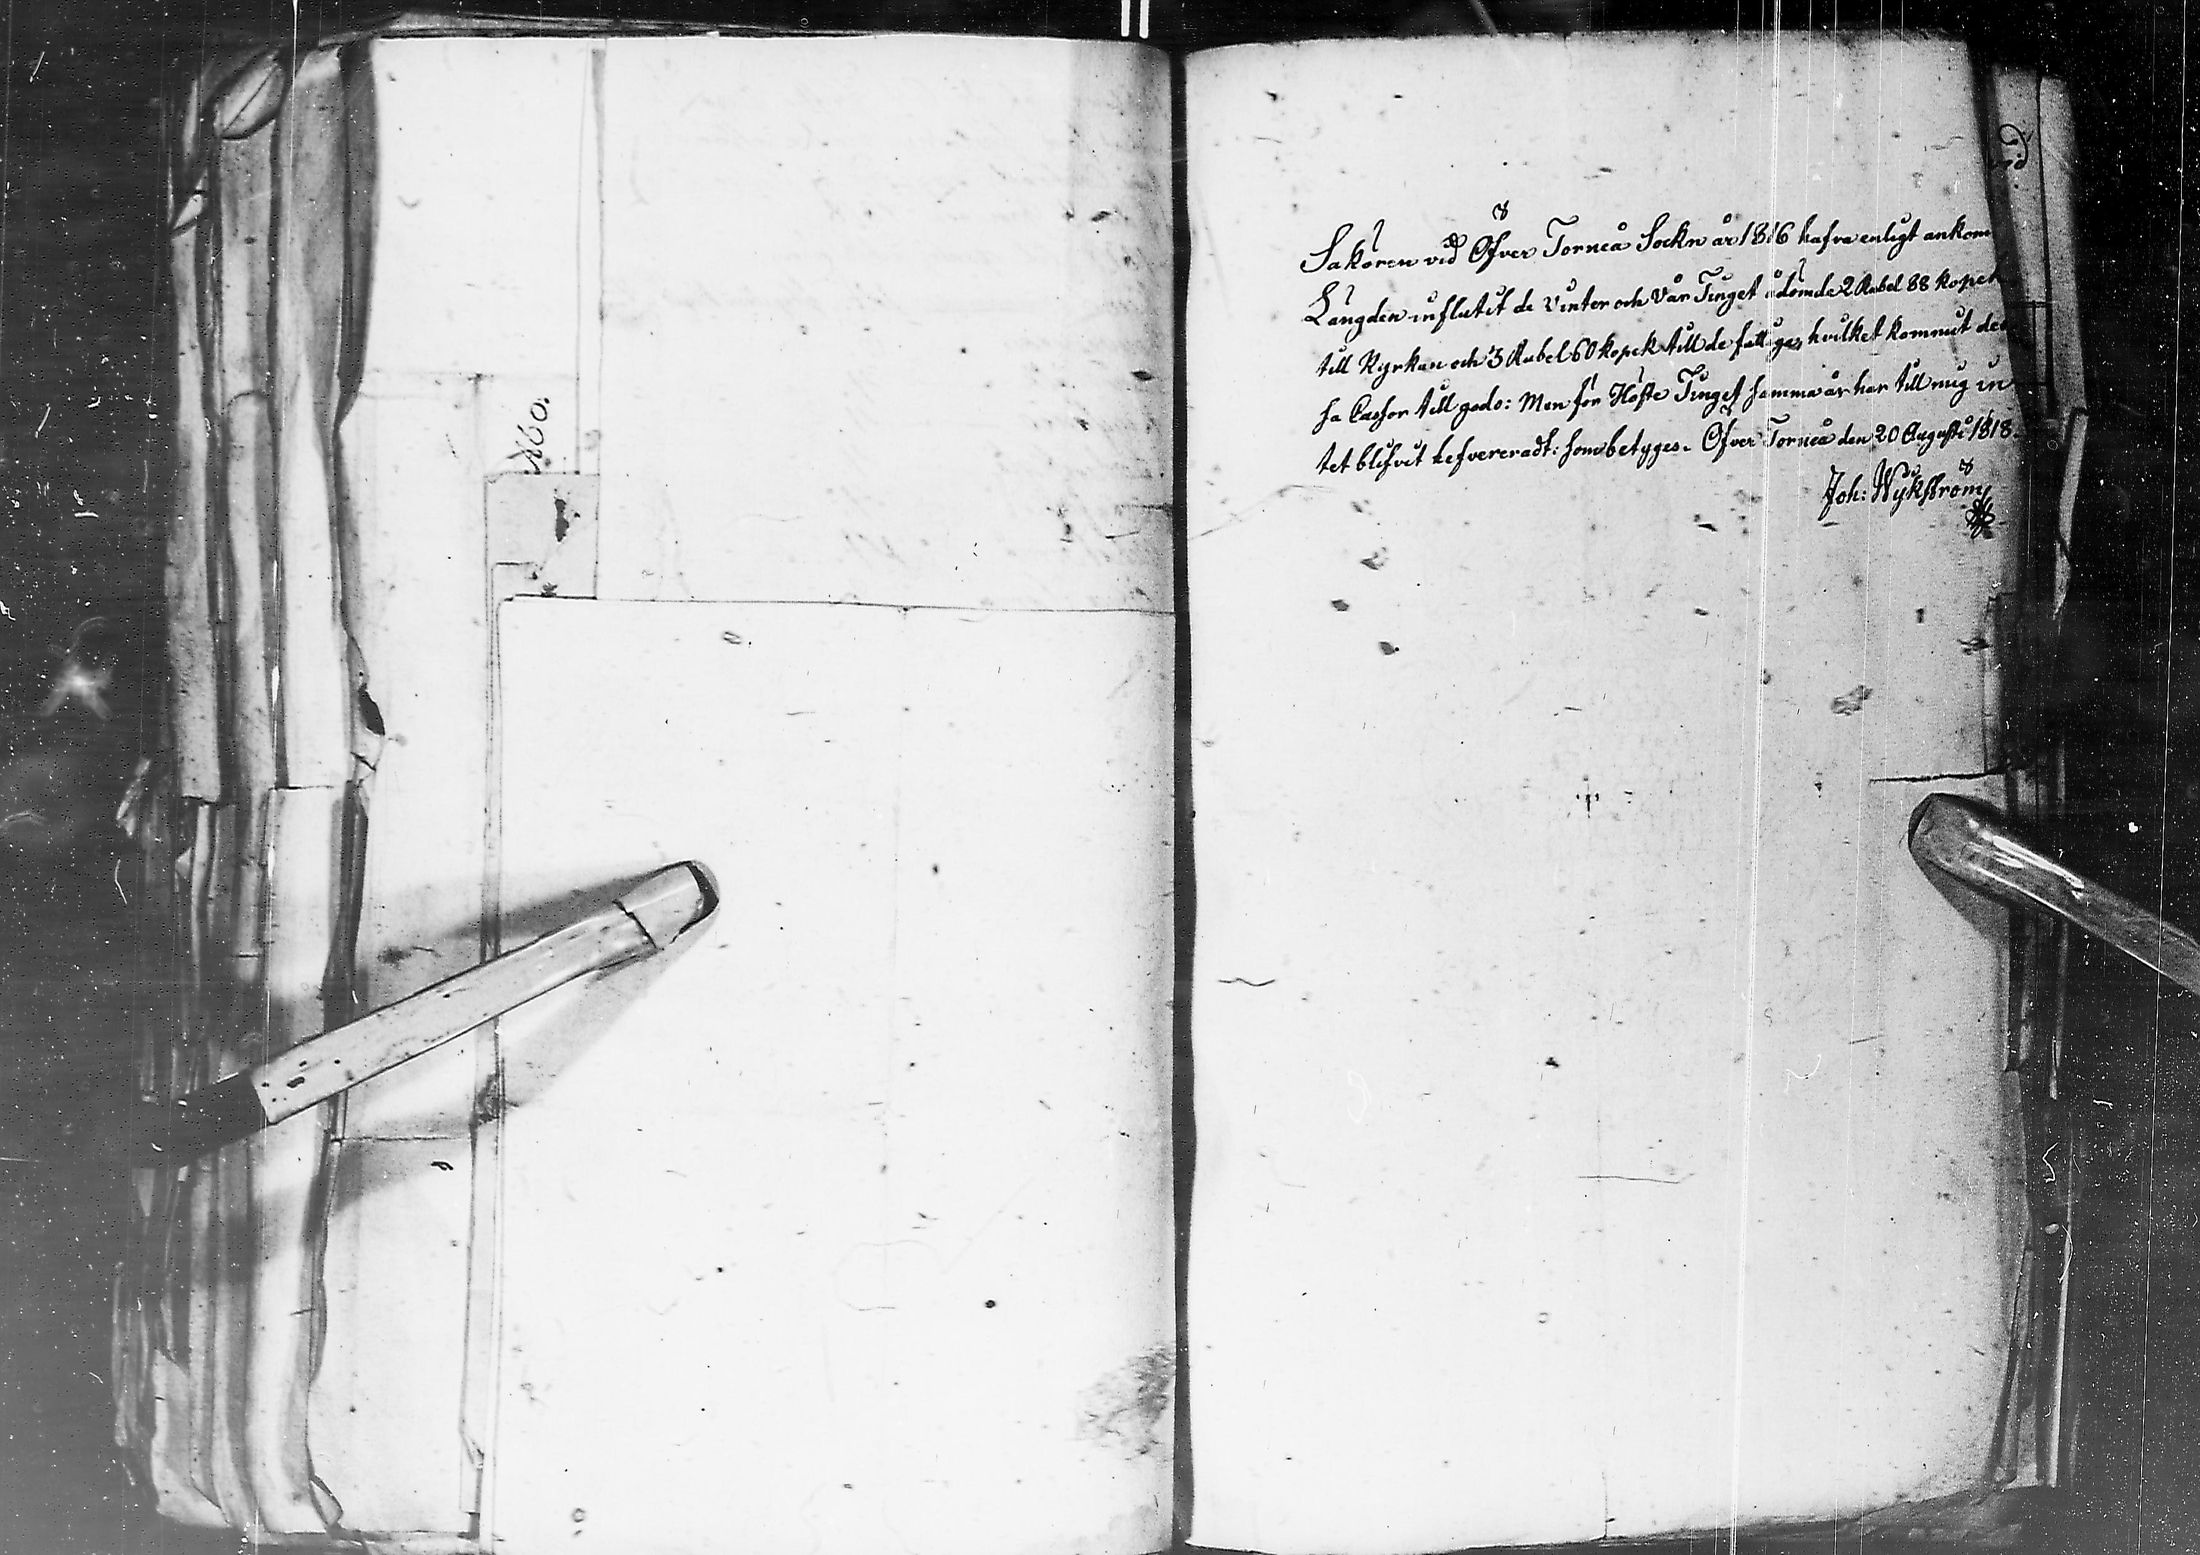 Åbo.
Saköron vid Öfver Torneå Sockn år 1816 hafva enligt ankom
Längden influtit de Vinter och Vår Tinget ådömde 2 Rubel 88 kopek
till Kyrkan och 3 Rubel 60 kopek till de fattiga, hvilket kommit des
sa Cassor till godo: Men för Höste Tinget samma år har till mig in
tet blifvit lefvereradt: som betyges. Öfver Torneå den 20 Augusti 1818.
Joh: Wijkström